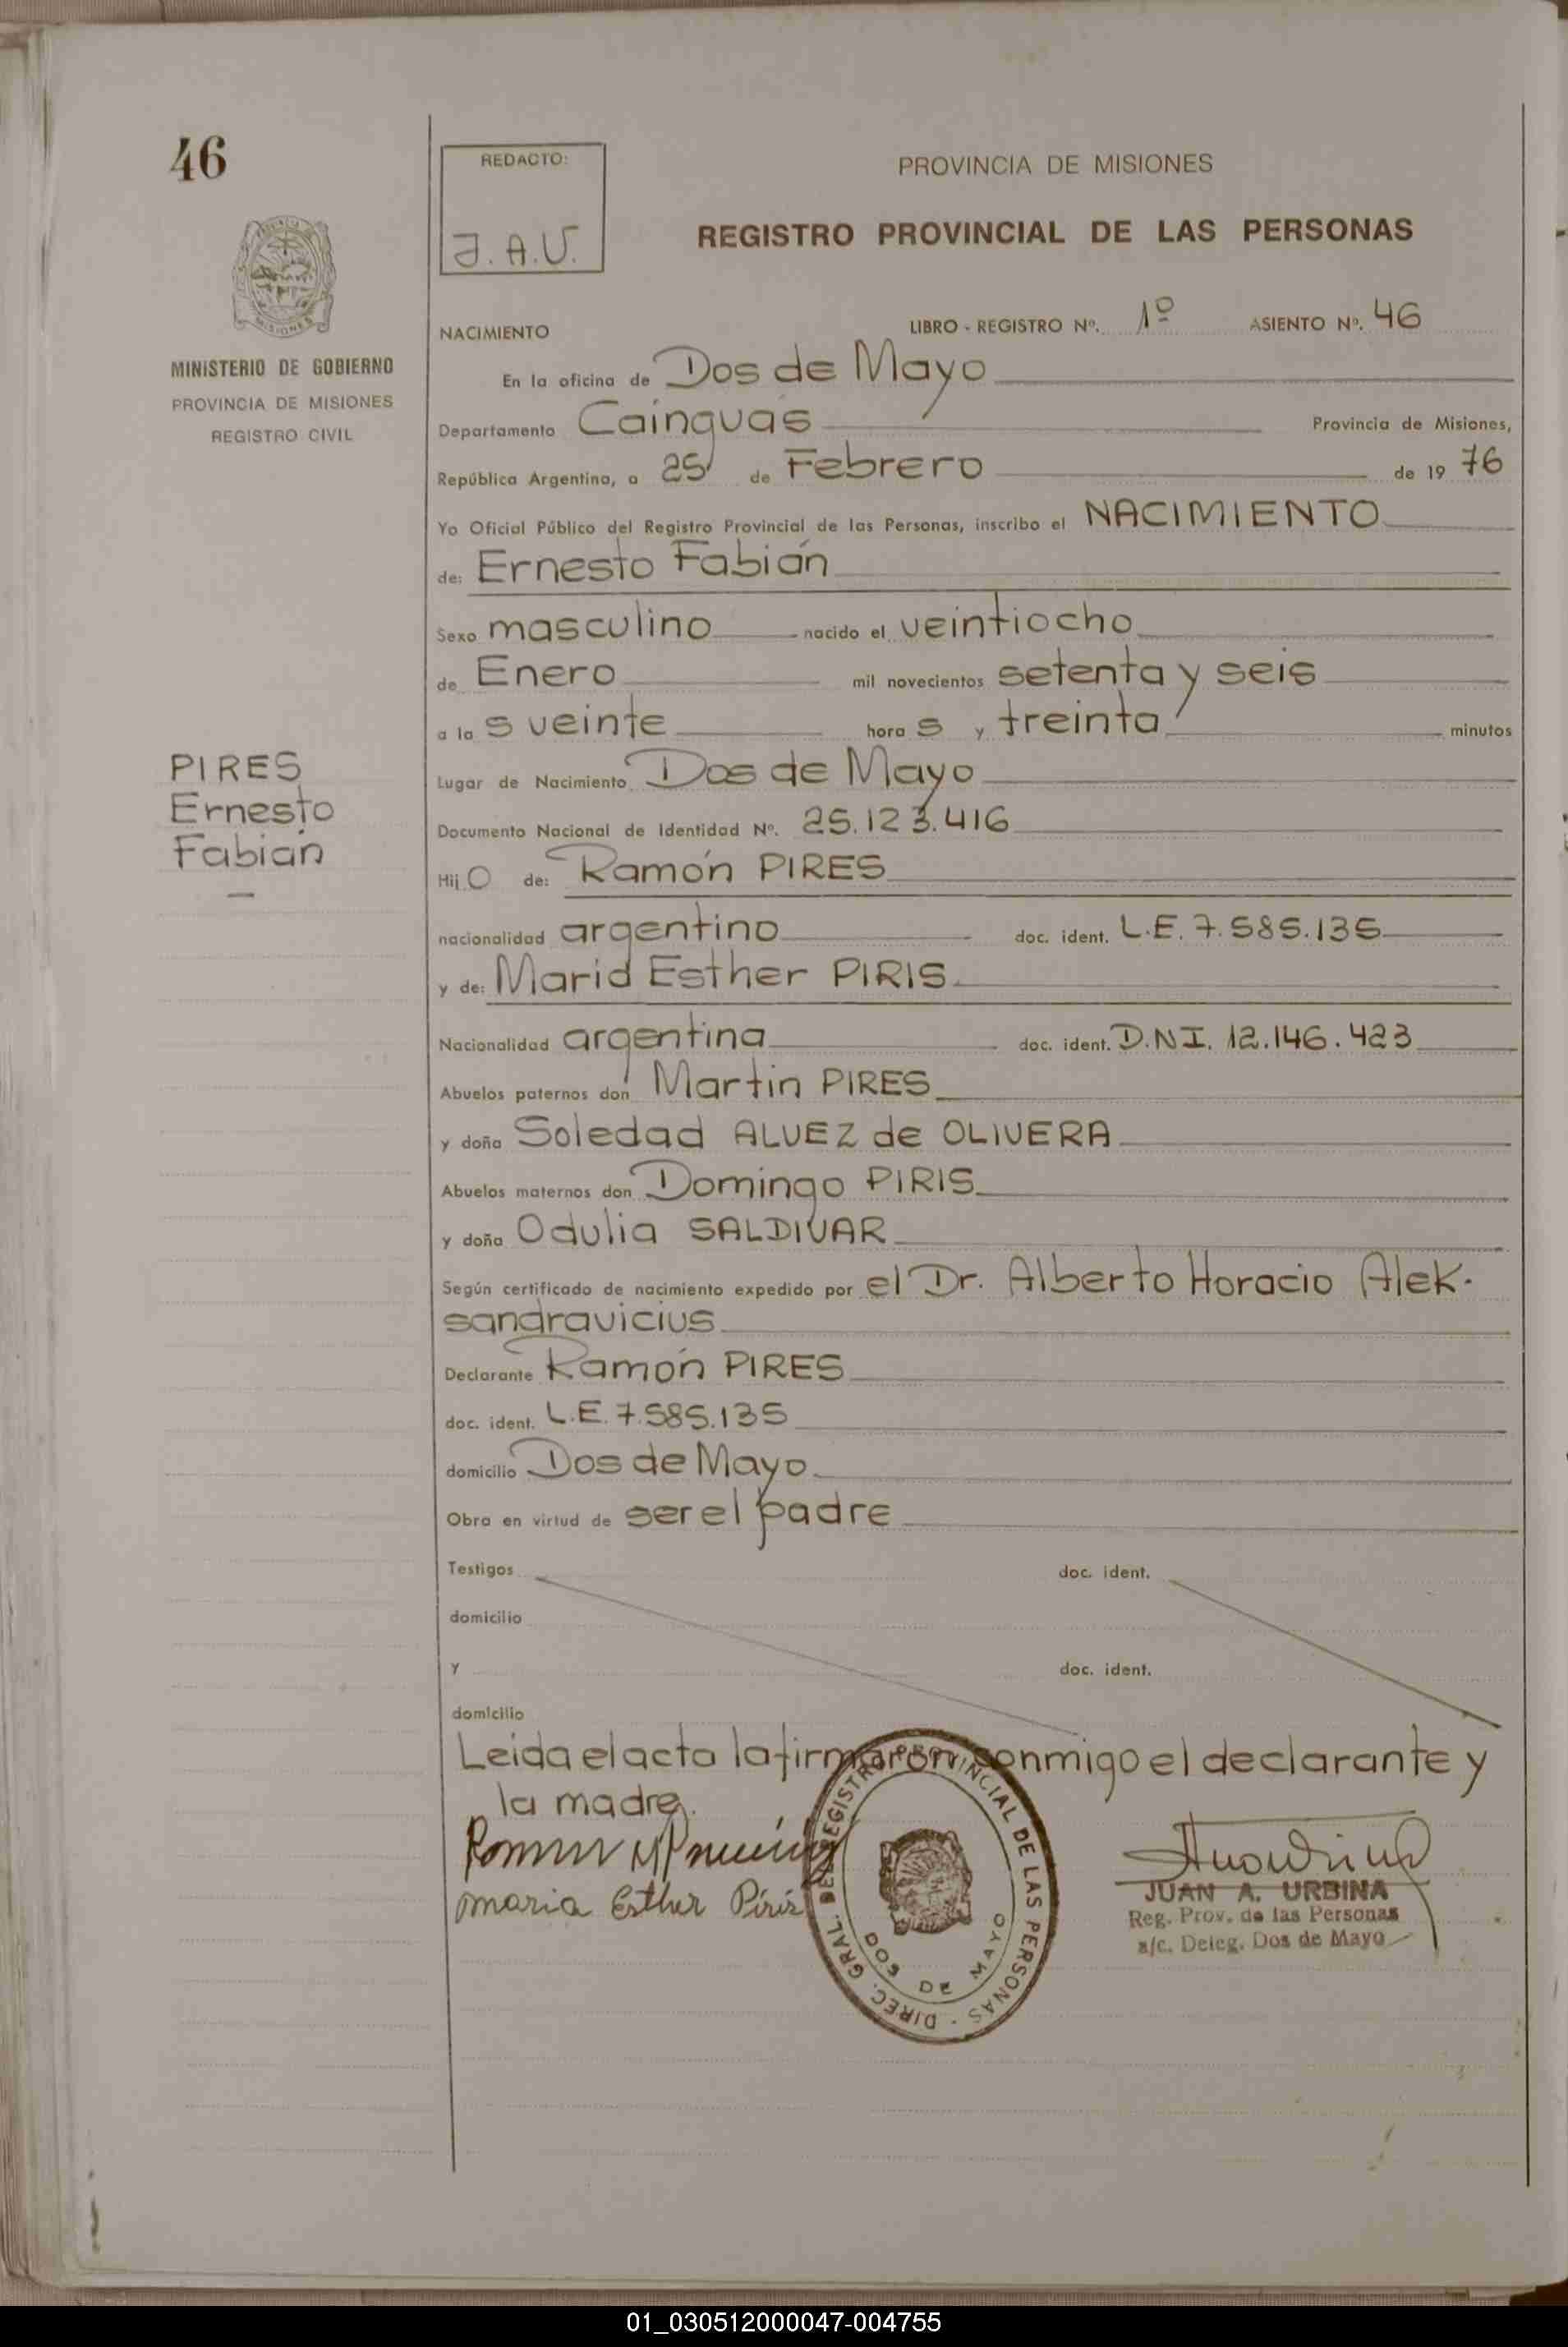 46
REDACTO:
J.A.U.
PROVINCIA DE MISIONES
REGISTRO PROVINCIAL DE LAS PERSONAS
MISIONES
MINISTERIO DE GOBIERNO
PROVINCIA DE MISIONES
REGISTRO CIVIL
NACIMIENTO LIBRO - REGISTRO Nº. 1º ASIENTO Nº. 46
En la oficina de Dos de Mayo
Departamento Cainguás Provincia de Misiones,
República Argentina, a 25 de Febrero de 19 76
Yo Oficial Público del Registro Provincial de las Personas, inscribo el NACIMIENTO
de: Ernesto Fabián
Sexo masculino nacido el veintiocho
de Enero mil novecientos setenta y seis
a la s veinte hora s y treinta minutos
PIRES
Ernesto
Fabián
Lugar de Nacimiento Dos de Mayo
Documento Nacional de Identidad Nº. 25.123.416
Hij O de: Ramón PIRES
nacionalidad argentino doc. ident. L.E. 7.585.135
y de: María Esther PIRIS
Nacionalidad argentina doc. ident. D.N.I. 12.146.423
Abuelos paternos don Martin PIRES
y doña Soledad ALVEZ de OLIVERA
Abuelos maternos don Domingo PIRIS
y doña Odulia SALDIVAR
Según certificado de nacimiento expedido por el Dr. Alberto Horacio Alek-
sandravicius
Declarante Ramón PIRES
doc. ident. L.E. 7.585.135
domicilio Dos de Mayo
Obra en virtud de ser el padre
Testigos doc. ident.
domicilio
y doc. ident.
domicilio
Leida el acta la firmaron conmigo el declarante y
la madre.
maria Esther Piris
DIREC. GRAL. DEL REGISTRO PROVINCIAL DE LAS PERSONAS -
DOS DE MAYO
JUAN A. URBINA
Reg. Prov. de las Personas
a/c. Deleg. Dos de Mayo
01_030512000047-004755